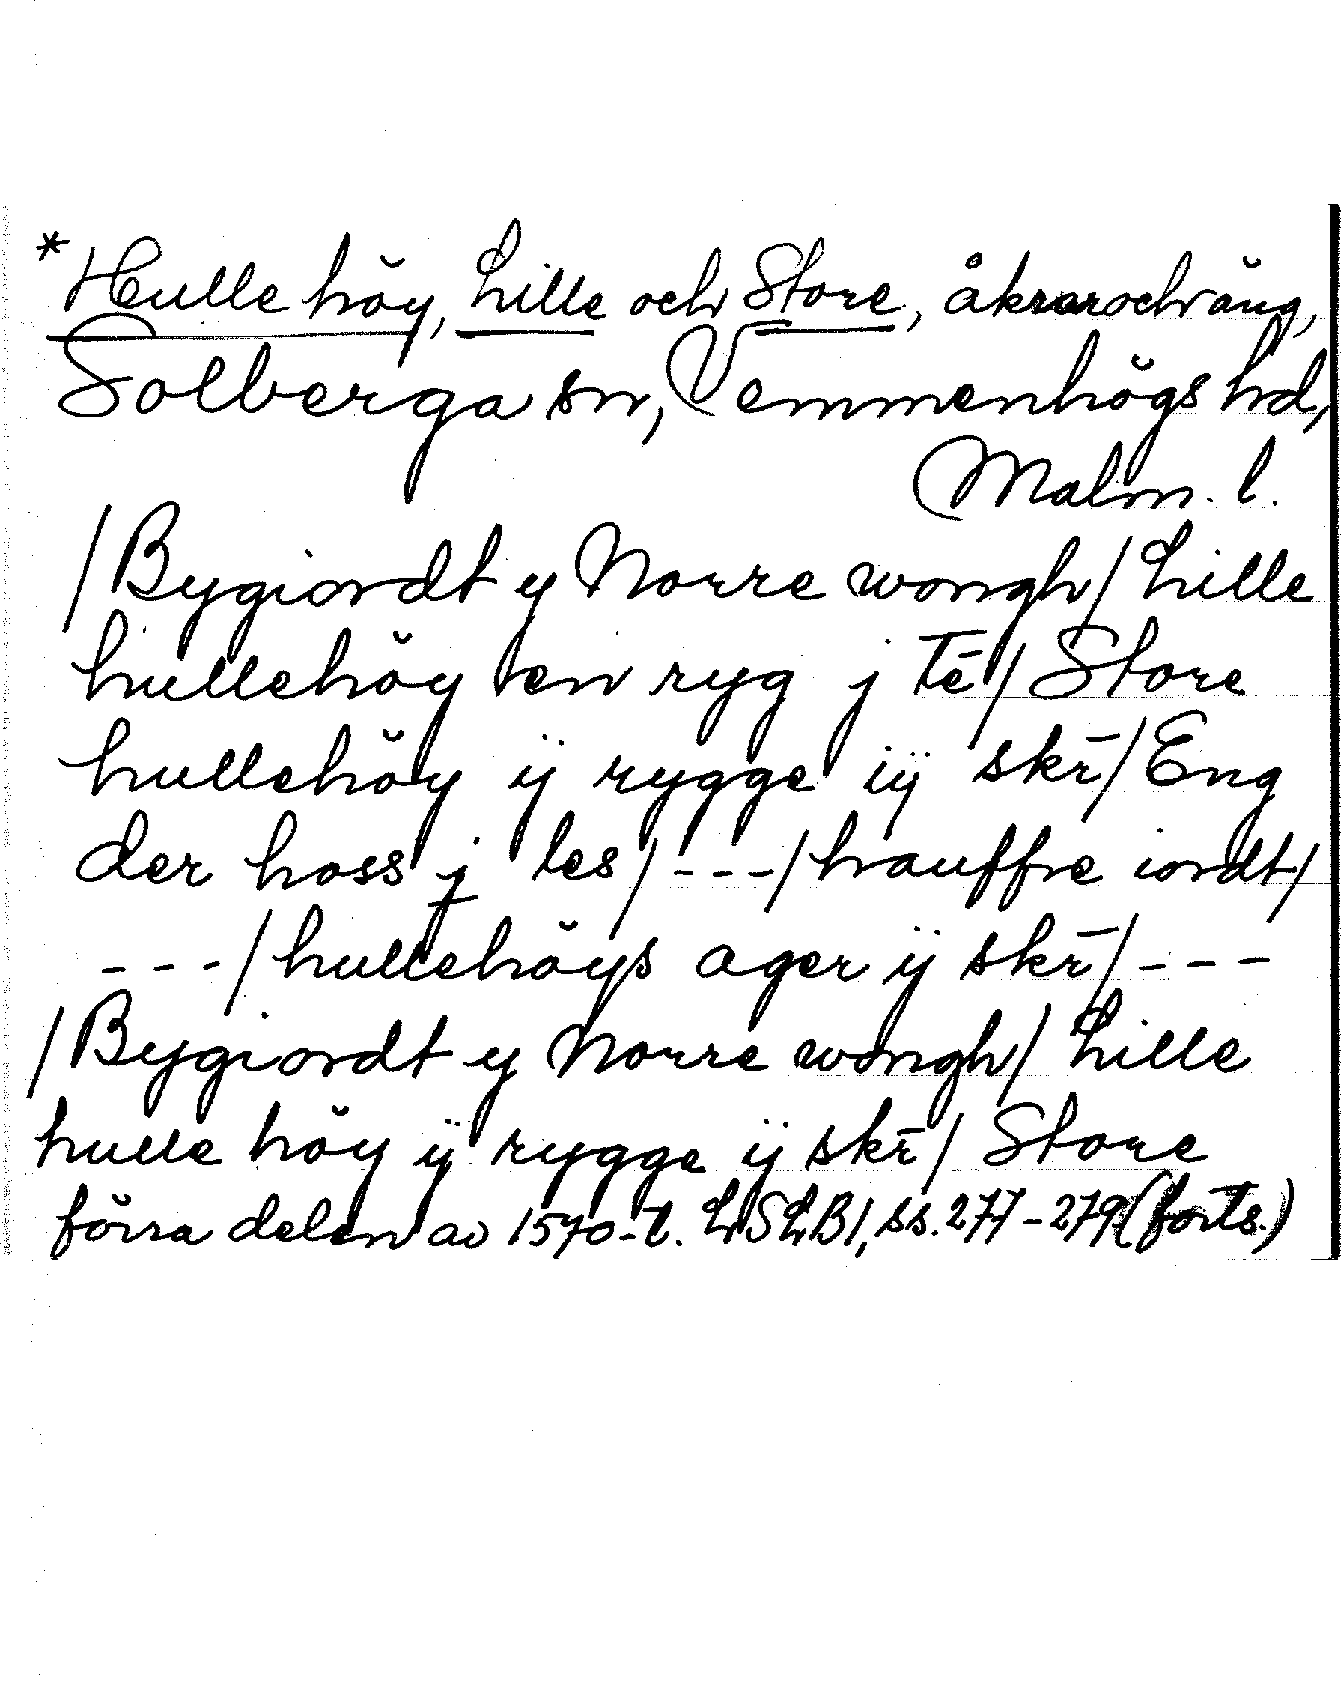 *Hulle höy, Lille och Store, åkrar och äng,
Solberga sn, Vemmenhögs hd,
Malm. l.
/Bygiordt y Norre wongh/ Lille
hullehöy en ryg j tē/ Store
hullehöy ij rygge iij skr̄/ Eng
der hoss j les/ ---/ hauffre iordt/
---/ hullehöys ager ij skr̄/ ---
/Bygiordt y Norre wongh/ Lille
hulle höy ij rygge ij skr̄/ Store
förra delen av 1570-t. LSLB1, ss. 277-279 (forts.)